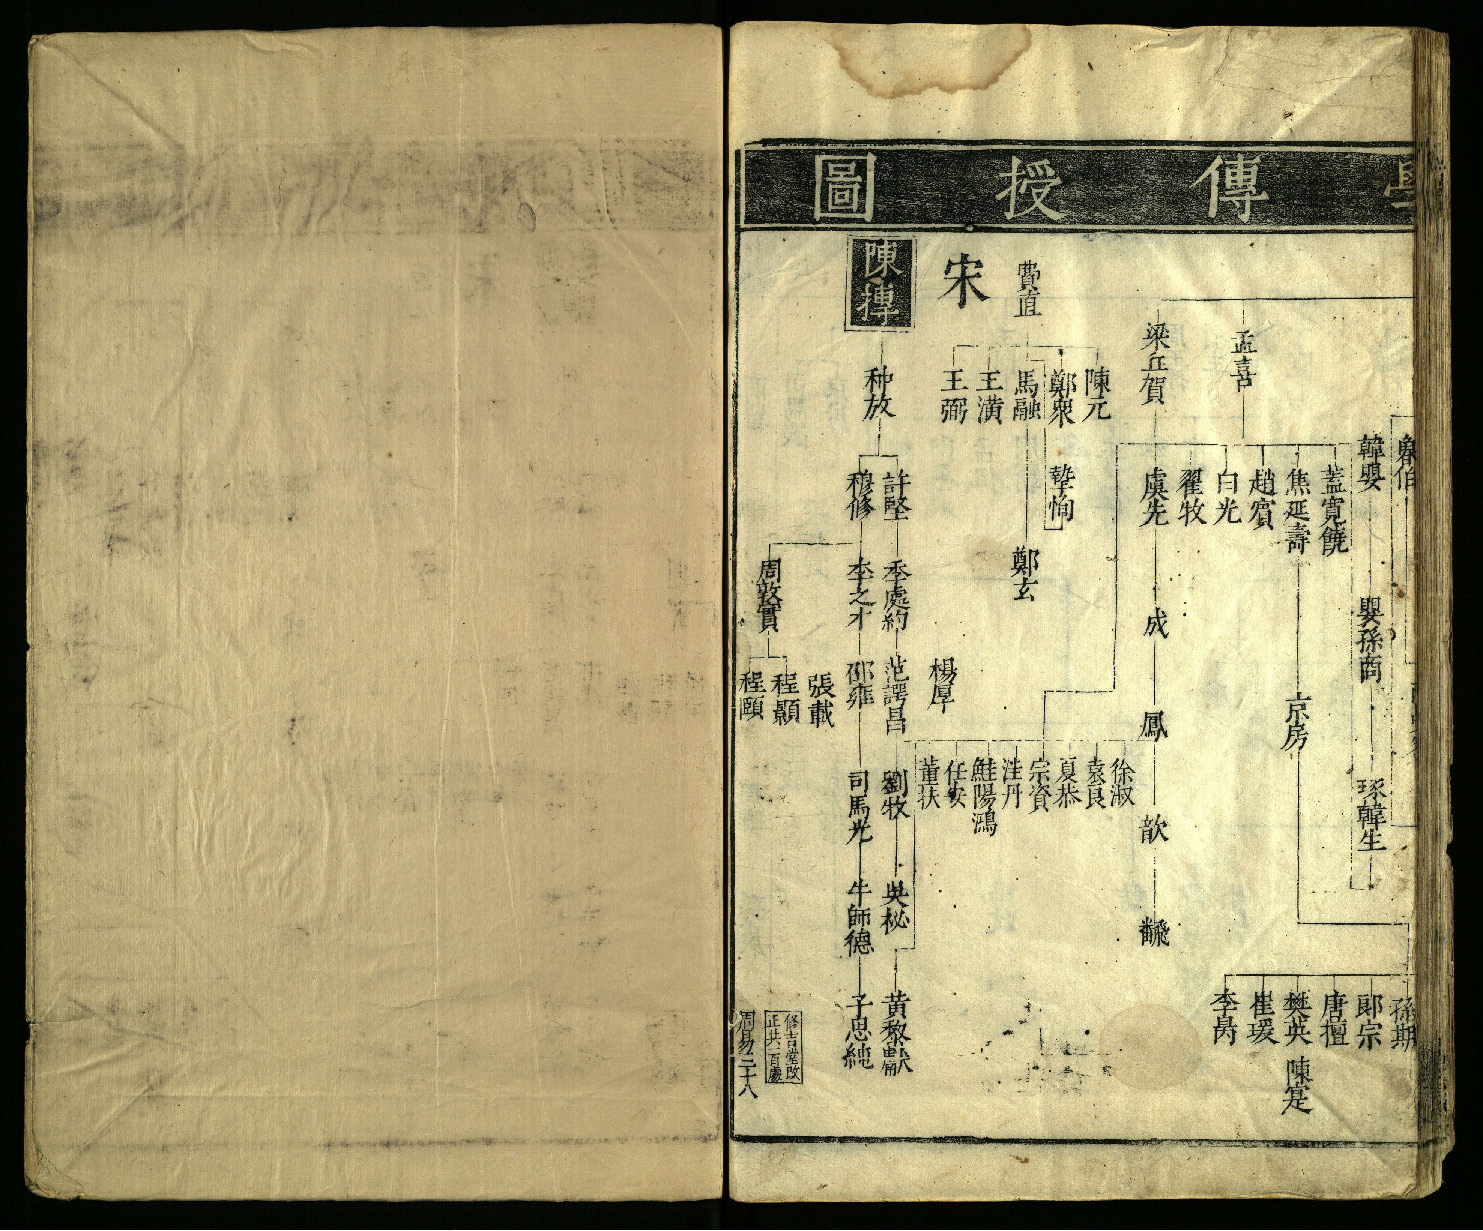 學傳授圖
魯伯
韓嬰
嬰孫商
琢韓生
孟喜
蓋寬饒
焦延壽
京房
趙賓
白光
翟牧
孫期
郎宗
唐檀
樊英
陳寔
崔瑗
李昺
梁丘賀
虞先
成
鳳
歆
翻
徐淑
袁良
夏恭
宗資
洼丹
鮭陽鴻
任安
董扶
楊厚
費直
陳元
鄭眾
摯恂
馬融
鄭玄
王潢
王弼
宋
陳摶
种放
許堅
李處約
范諤昌
劉牧
吳祕
黃黎獻
穆修
李之才
邵雍
司馬光
牛師德
子思純
周敦實
張載
程顥
程頤
修吉堂改
正共二百處
周易二十八